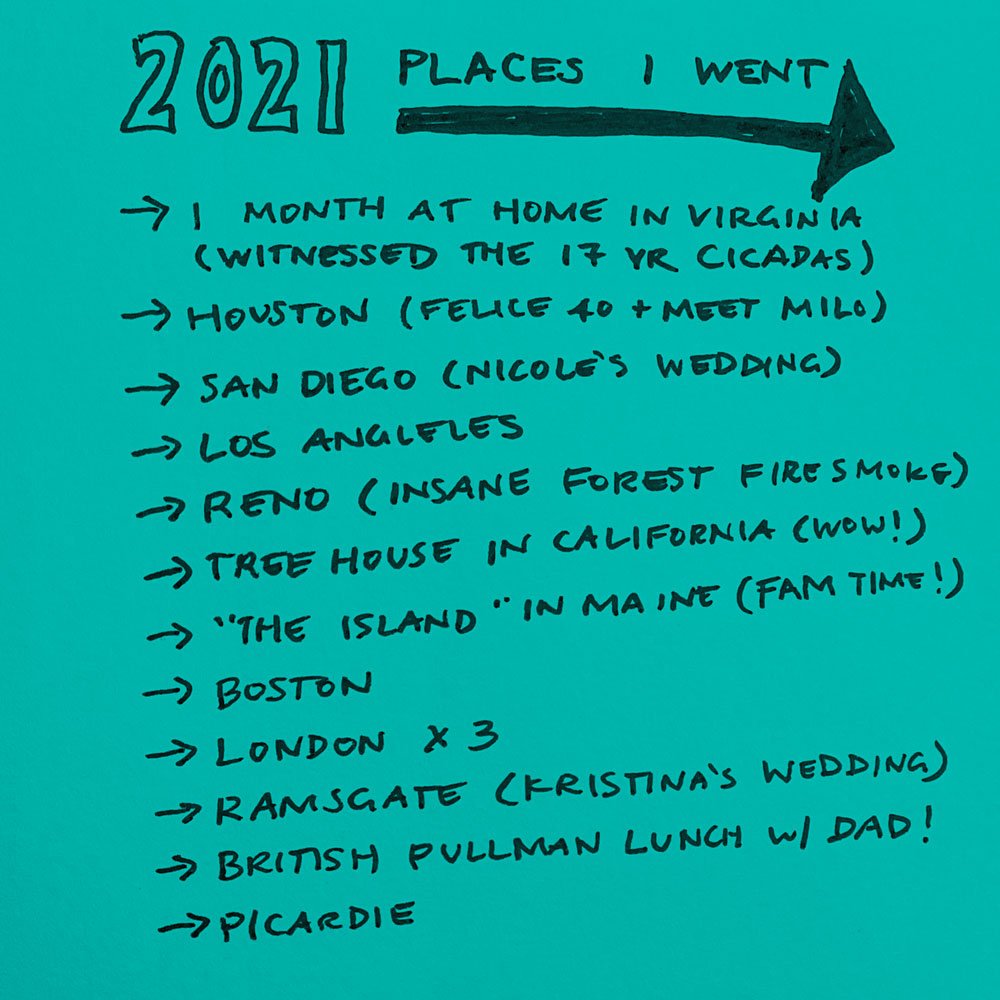 2021 PLACES I WENT
→ 1 MONTH AT HOME IN VIRGINIA
(WITNESSED THE 17 YR CICADAS)
→ HOUSTON (FELICE 40 + MEET MILO)
→ SAN DIEGO (NICOLE'S WEDDING)
→ LOS ANGLELES
→ RENO (INSANE FOREST FIRE SMOKE)
→ TREE HOUSE IN CALIFORNIA (WOW!)
→ "THE ISLAND" IN MAINE (FAM TIME!)
→ BOSTON
→ LONDON X 3
→ RAMSGATE (KRISTINA'S WEDDING)
→ BRITISH PULLMAN LUNCH W/ DAD!
→ PICARDIE